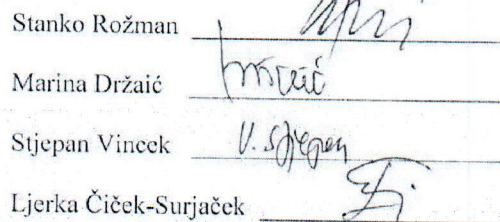 Stanko Rožman
Marina Držaić
Stjepan Vincek V. Stjepan
Ljerka Čiček-Surjaček